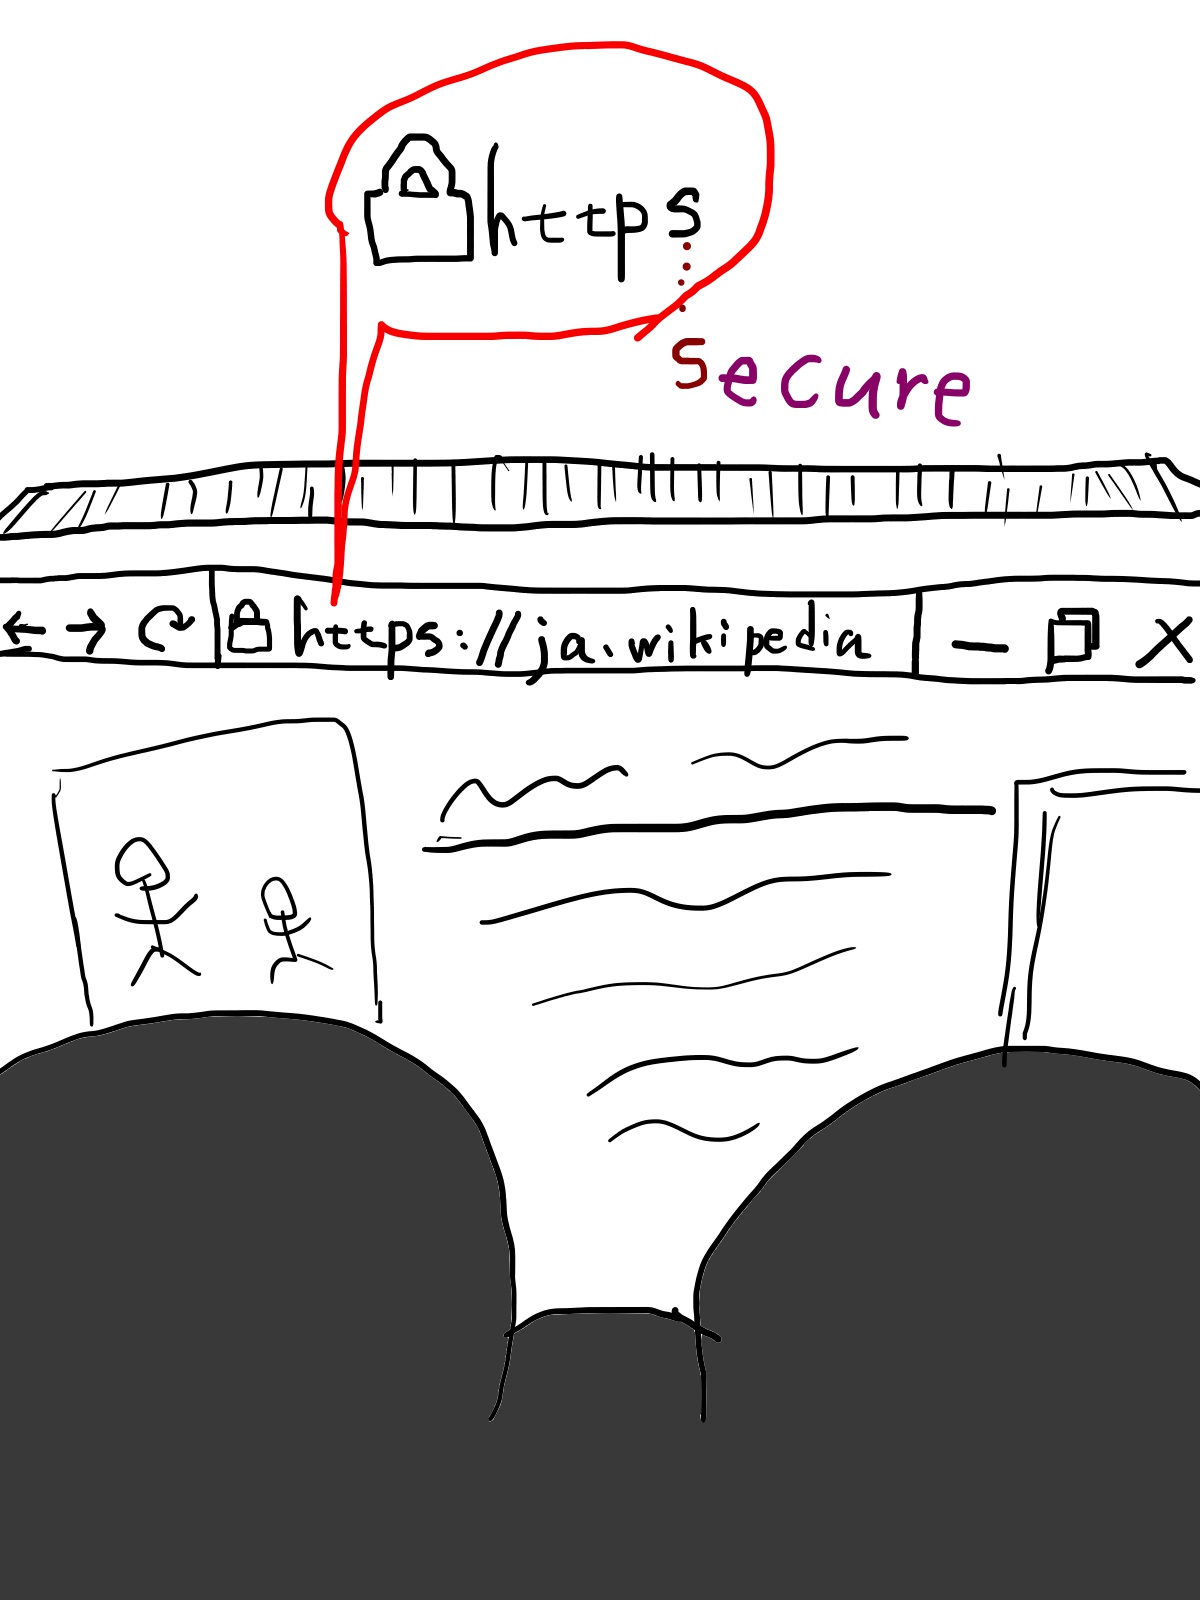 https
secure
https://ja.wikipedia